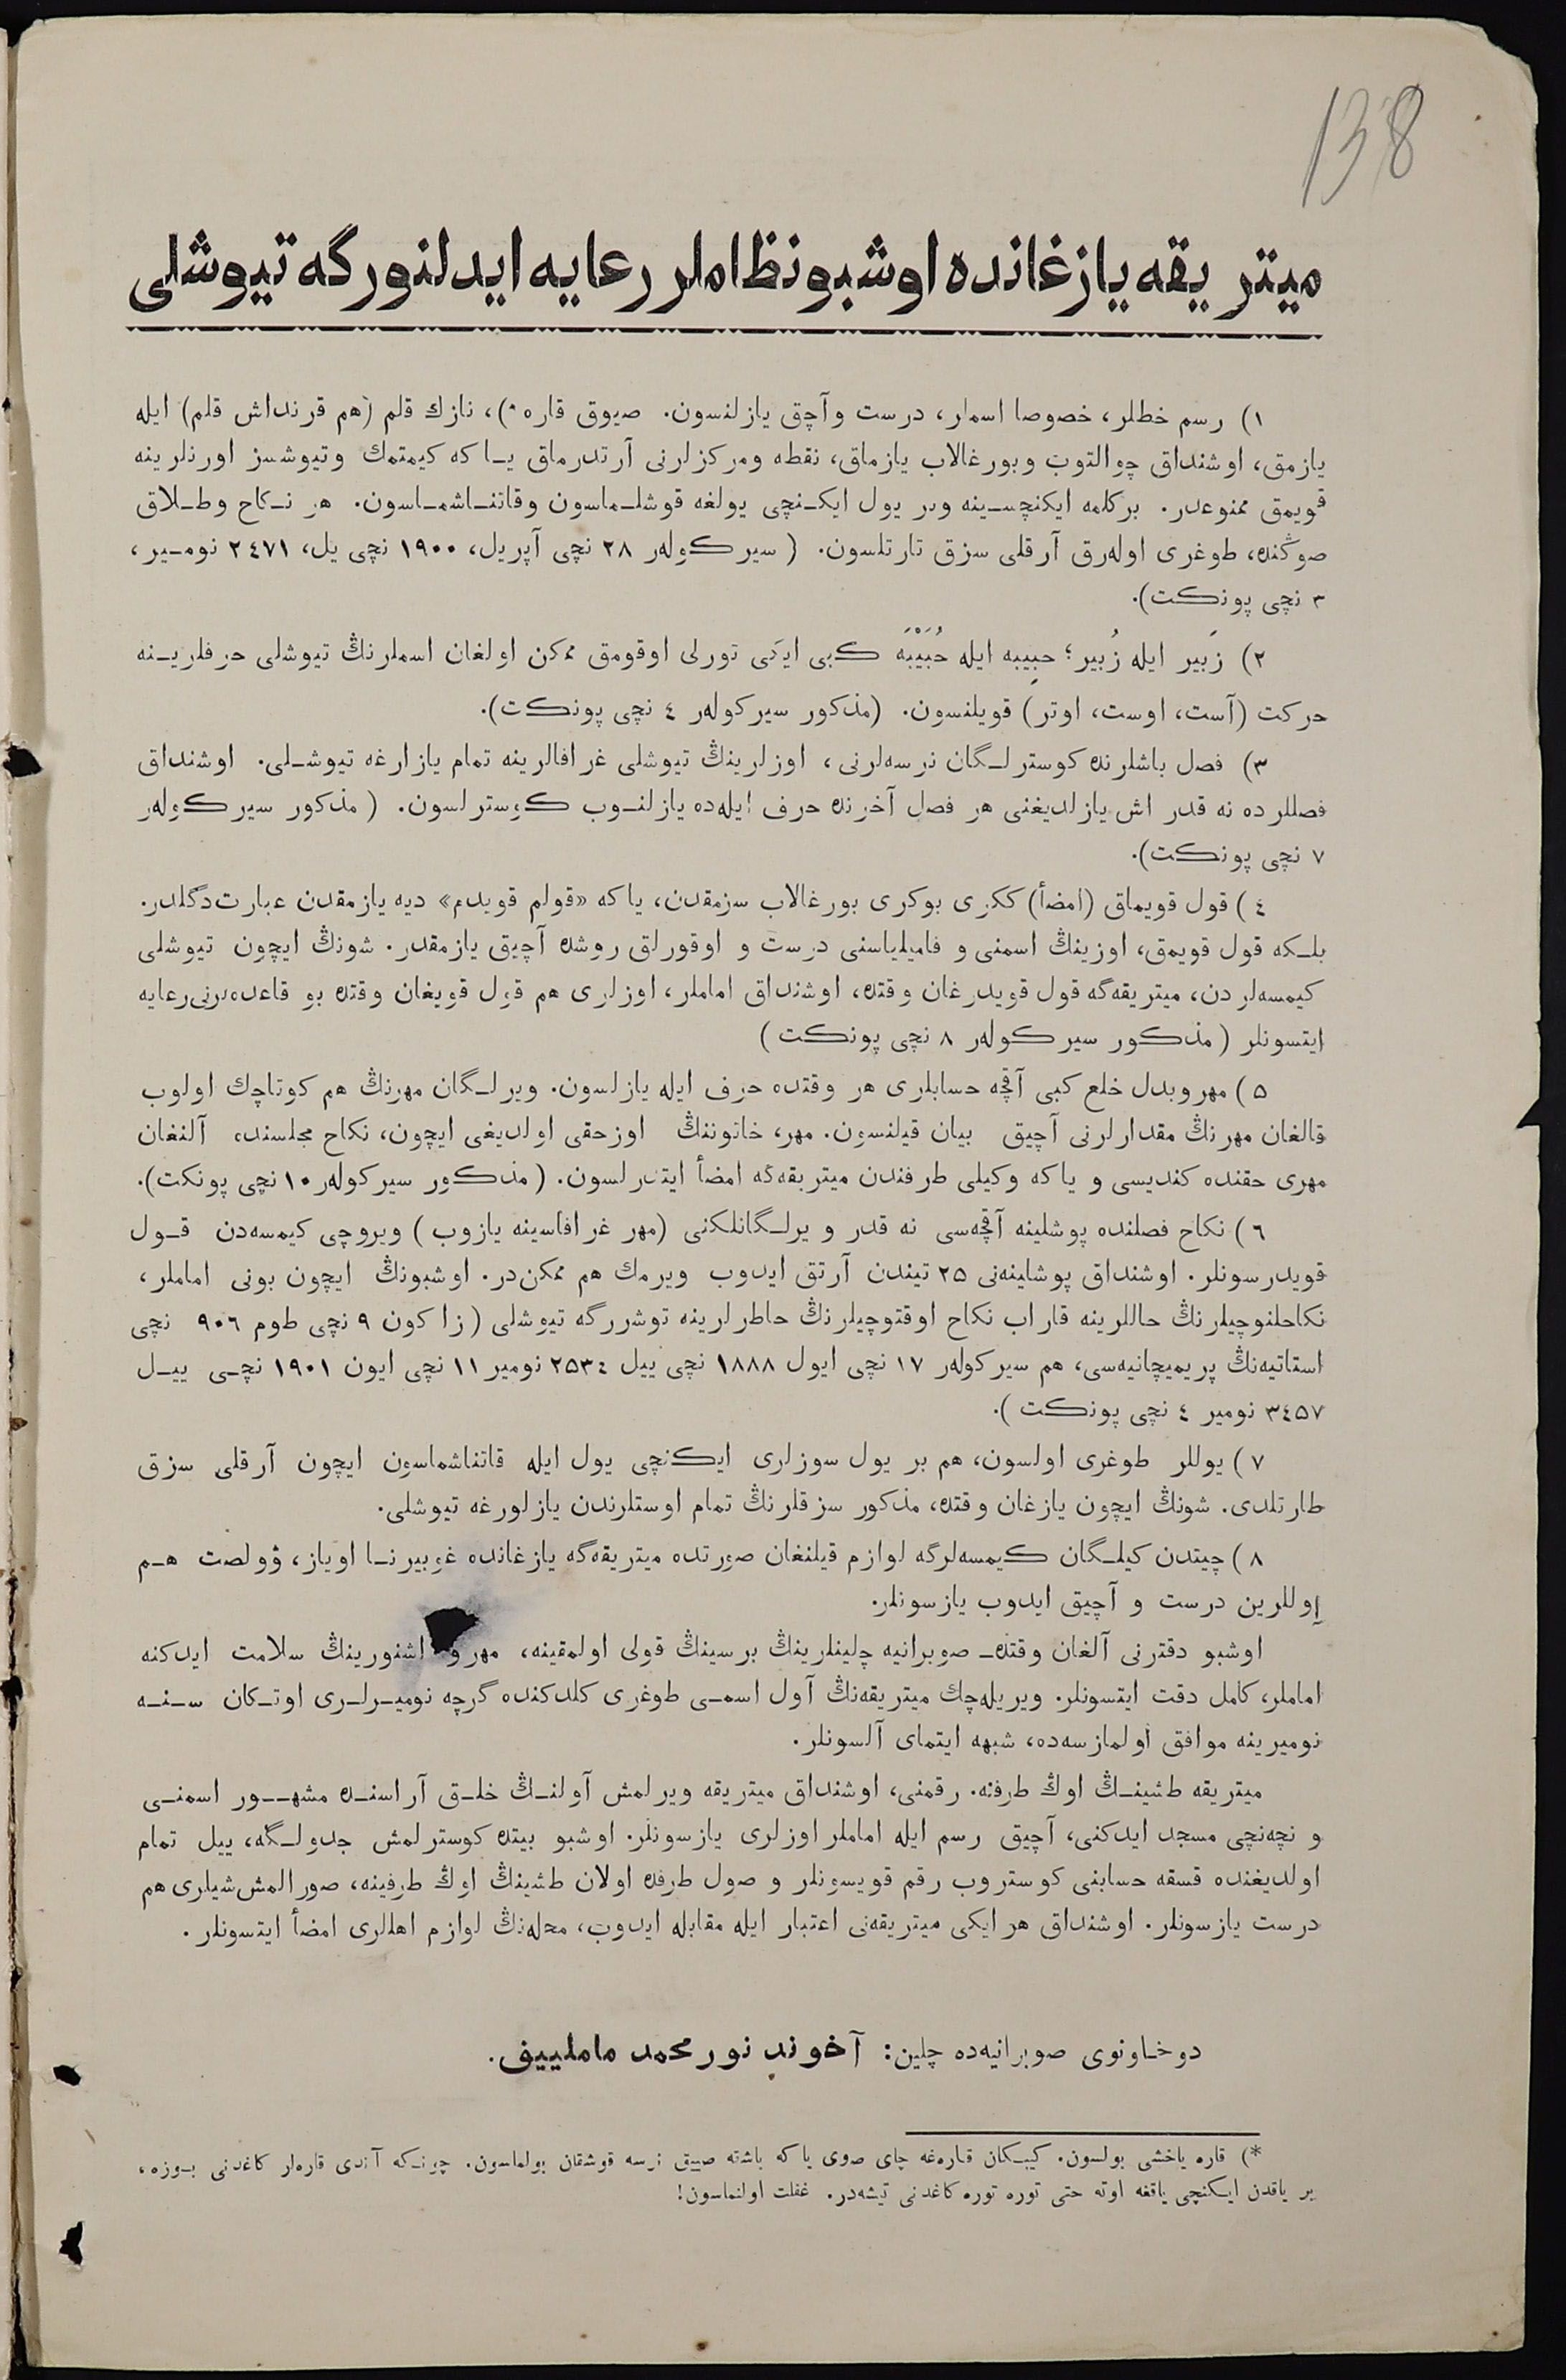 138
ميتريقه يازغانده اوشبو نظاملر رعايه ايدلنورگه تيوشلى
١) رسم خطلر، خصوصا اسملر، درست وآچق يازلنسون. صيوق قاره*)، نازك قلم (هم قرنداش قلم) ايله
يازمق، اوشنداق چوالتوب وبورغالاب يازماق، نقطه ومركزلرنى آرتدرماق يـا كه كيمتمك وتيوشسز اورنلرينه
قويمق ممنوعدر. بركلمه ايكنچسـينه وبر يول ايكـنچى يولغه قوشلـماسون وقاتنـاشمـاسون. هر نـكاح وطـلاق
صوڭنده، طوغرى اولەرق آرقلى سزق تارتلسون. (سيركولەر ٢٨ نچى آپريل، ١٩٠٠ نچى يل، ٢٤٧١ نومـير،
٣ نچى پونكت).
٢) زَبير ايله زُبير؛ حبِيبه ايله حُبَيْبَه كبى ايكى تورلى اوقومق ممكن اولغان اسملرنڭ تيوشلى حرفلريـنه
حركت (آست، اوست، اوتر) قويلنسون. (مذكور سيركولەر ٤ نچى پونكت).
٣) فصل باشلرنده كوسترلـگان نرسەلرنى، اوزلرينڭ تيوشلى غرافالرينه تمام يازارغه تيوشـلى. اوشنداق
فصللرده نه قدر اش يازلديغنى هر فصل آخرنده حرف ايلەده يازلنـوب كوسترلسون. (مذكور سيركولەر
٧ نچى پونكت).
٤) قول قويماق (امضأ) ككرى بوكرى بورغالاب سزمقدن، ياكه «قولم قويدم» ديه يازمقدن عبارت دگلدر.
بلـكه قول قويمق، اوزينڭ اسمنى و فاميلياسنى درست و اوقورلق روشده آچيق يازمقدر. شونڭ ايچون تيوشلى
كيمسەلردن، ميتريقەگه قول قويدرغان وقتده، اوشنداق اماملر، اوزلرى هم قول قويغان وقتده بو قاعدەلرنى رعايه
ايتسونلر (مذكور سيركولەر ٨ نچى پونكت)
٥) مهر وبدل خلع كبى آقچه حسابلرى هر وقتده حرف ايله يازلسون. ويرلـگان مهرنڭ هم كوتاچك اولوب
قالغان مهرنڭ مقدارلرنى آچيق بيان قيلنسون. مهر، خاتوننڭ اوزحقى اولديغى ايچون، نكاح مجلسنده آلنغان
مهرى حقنده كنديسى و ياكه وكيلى طرفندن ميتريقەگه امضأ ايتدرلسون. (مذكور سيركولەر ١٠ نچى پونكت).
٦) نكاح فصلنده پوشلينه آقچەسى نه قدر ويرلـگانلكنى (مهر غرافاسينه يازوب) ويروچى كيمسەدن قـول
قويدرسونلر. اوشنداق پوشلينەنى ٢٥ تيندن آرتق ايدوب ويرمك هم ممكن در. اوشبونڭ ايچون بونى اماملر،
نكاحلنوچيلرنڭ حاللرينه قاراب نكاح اوقتوچيلرنڭ خاطرلرينه توشررگه تيوشلى (زاكون ٩ نچى طوم ٩٠٦ نچى
استاتيەنڭ پريميچانيەسى، هم سيركولەر ١٧ نچى ايول ١٨٨٨ نچى ييل ٢٥٣٤ نومير ١١ نچى ايون ١٩٠١ نچـى ييـل
٣٤٥٧ نومير ٤ نچى پونكت).
٧) يوللر طوغرى اولسون، هم بر يول سوزلرى ايكنچى يول ايله قاتناشماسون ايچون آرقلى سزق
طارتلدى. شونڭ ايچون يازغان وقتده، مذكور سزقلرنڭ تمام اوستلرندن يازلورغه تيوشلى.
٨) چيتدن كيلـگان كيمسەلرگه لوازم قيلنغان صورتده ميتريقەگه يازغانده غوبيرنـا اوياز، ۋولصت هـم
اوللرين درست و آچيق ايدوب يازسونلر.
اوشبو دفترنى آلغان وقتدەـ صوبرانيه چلينلرينڭ برسينڭ قولى اولمقينه، مهر و اشنورينڭ سلامت ايدكنه
اماملر، كامل دقت ايتسونلر. ويريلەچك ميتريقەنڭ آول اسمـى طوغرى كلدكنده گرچه نوميـرلـرى اوتـكان سـنـه
نوميرينه موافق اولمازسەده، شبهه ايتماى آلسونلر.
ميتريقه طشينـڭ اوڭ طرفنه. رقمنى، اوشنداق ميتريقه ويرلمش آولنـڭ خلـق آراسنـده مشهــور اسمنـى
و نچەنچى مسجد ايدكنى، آچيق رسم ايله اماملر اوزلرى يازسونلر. اوشبو بيتده كوسترلمش جدولـگه، ييل تمام
اولديغنده قسقه حسابنى كوستروب رقم قويسونلر و صول طرفده اولان طشينڭ اوڭ طرفينه، صورالمش شيلرى هم
درست يازسونلر. اوشنداق هر ايكى ميتريقەنى اعتبار ايله مقابله ايدوب، محلەنڭ لوازم اهللرى امضأ ايتسونلر.
دوخاونوى صوبرانيەده چلين: آخوند نورمحمد ماملييف.
*) قاره ياخشى بولسون. كيبـكان قارەغه چاى صوى ياكه باشته صييق نرسه قوشقان بولماسون. چونـكه آندى قارەلر كاغدنى بـوزه،
بر ياقدن ايـكنچى ياقغه اوته حتى توره توره كاغدنى تيشەدر. غفلت اولنماسون!